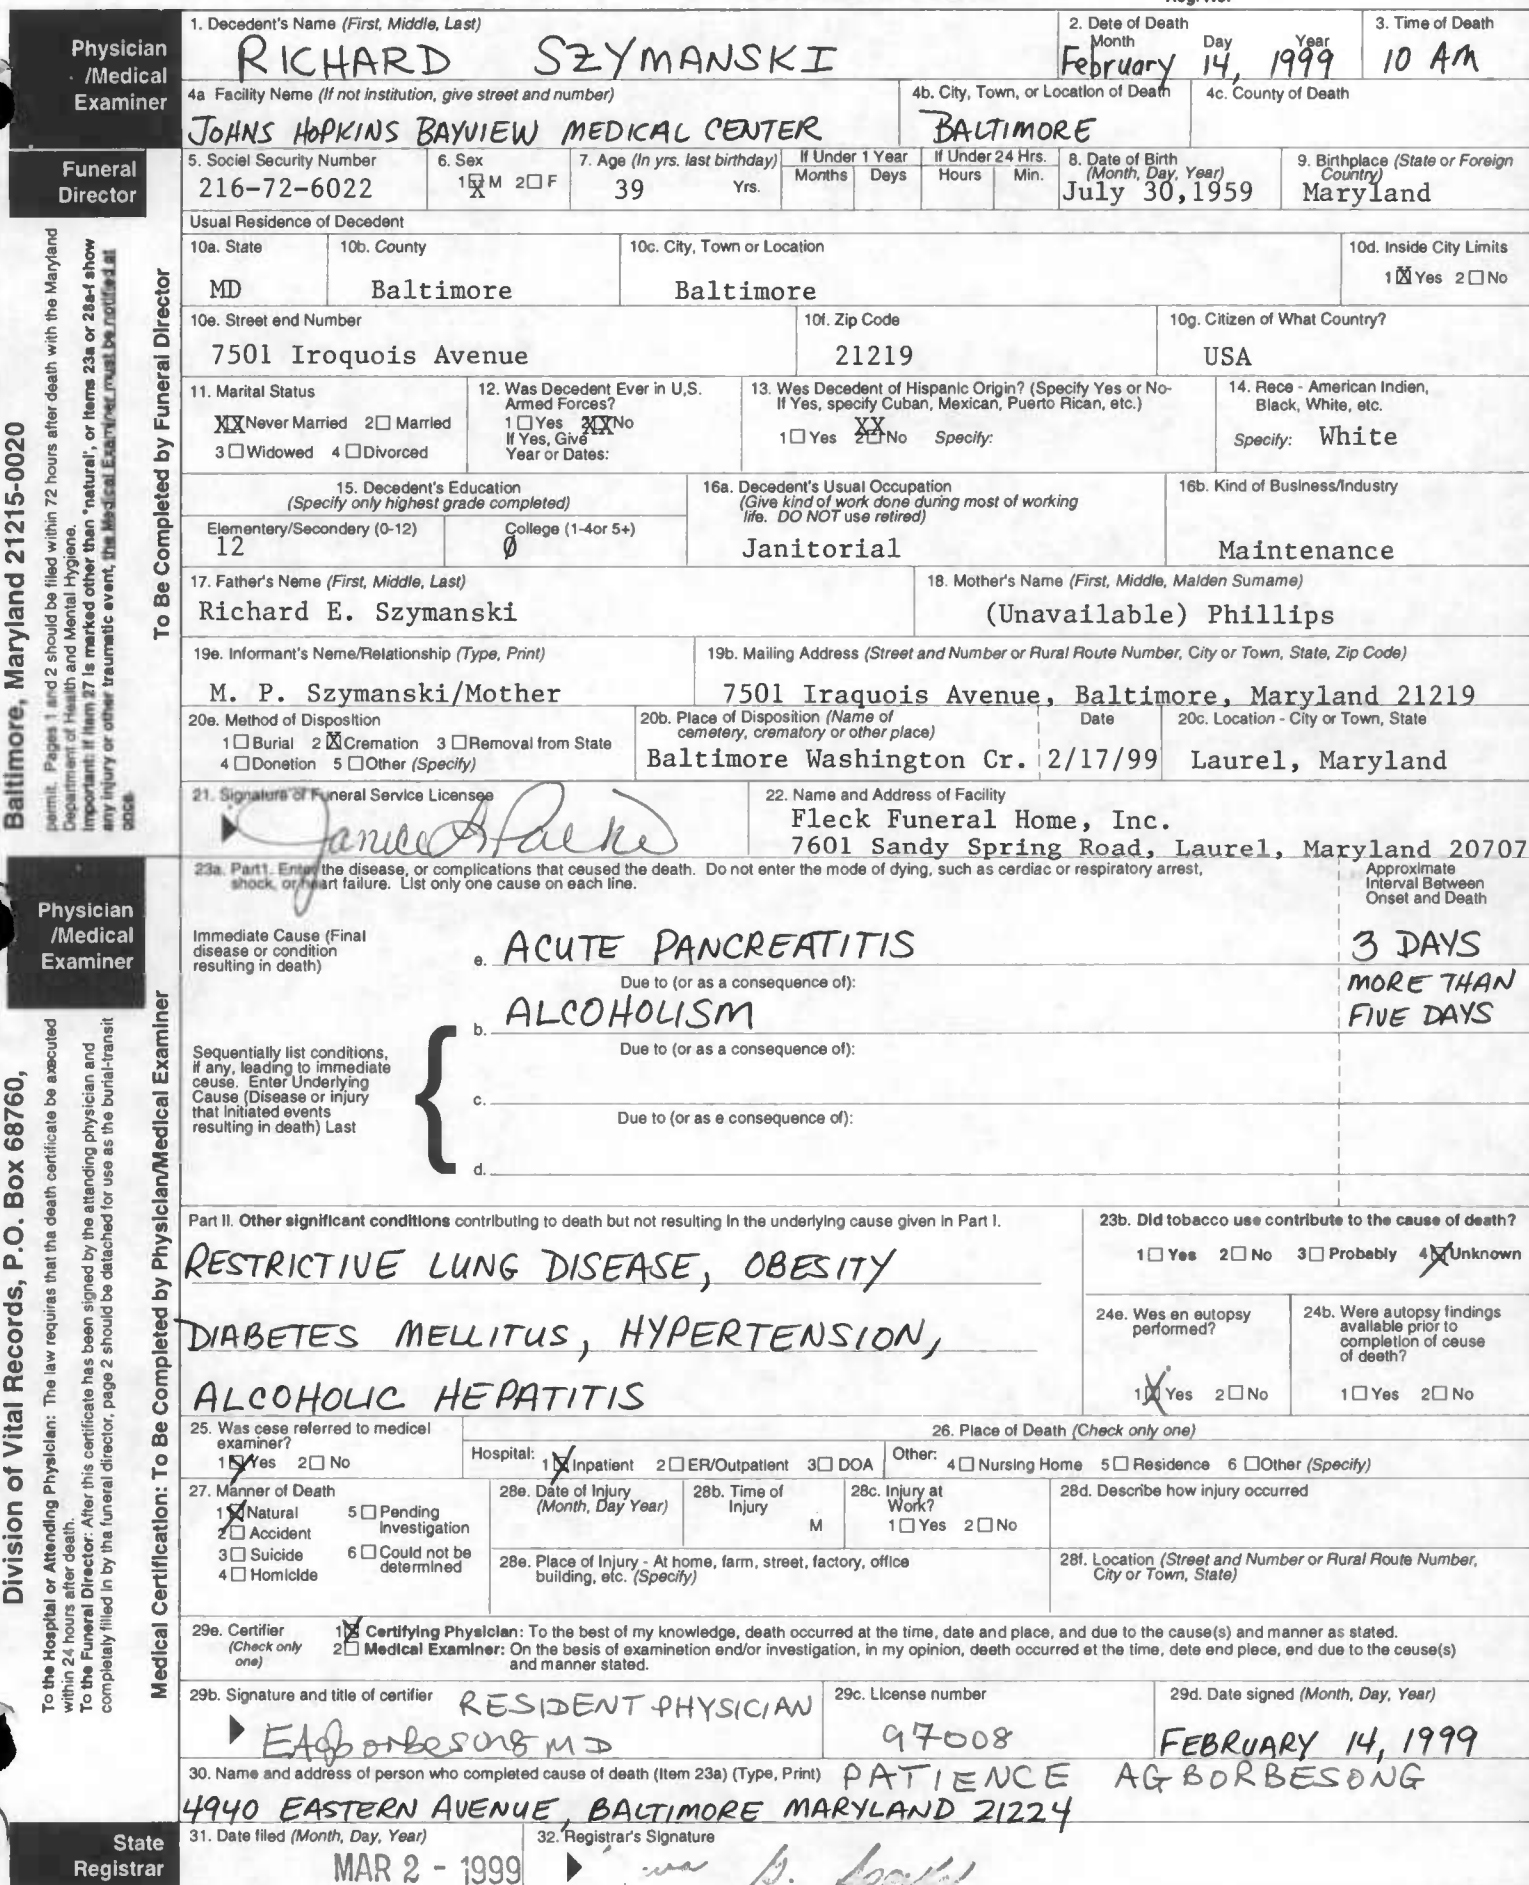 Physician
/Medical
Examiner
1. Decedent's Name (First, Middle, Last)
RICHARD SZYMANSKI
2. Date of Death
Month Day Year
February 14, 1999
3. Time of Death
10 AM
4a Facility Name (If not institution, give street and number)
JOHNS HOPKINS BAYVIEW MEDICAL CENTER
4b. City, Town, or Location of Death
BALTIMORE
4c. County of Death
Funeral
Director
5. Social Security Number
216-72-6022
6. Sex
1☒M 2☐F
7. Age (In yrs. last birthday)
39 Yrs.
If Under 1 Year
Months Days
If Under 24 Hrs.
Hours Min.
8. Date of Birth
(Month, Day, Year)
July 30,1959
9. Birthplace (State or Foreign
Country)
Maryland
Usual Residence of Decedent
10a. State
MD
10b. County
Baltimore
10c. City, Town or Location
Baltimore
10d. Inside City Limits
1☒Yes 2☐No
10e. Street and Number
7501 Iroquois Avenue
10f. Zip Code
21219
10g. Citizen of What Country?
USA
11. Marital Status
XX Never Married 2☐ Married
3☐Widowed 4☐Divorced
12. Was Decedent Ever in U,S.
Armed Forces?
1☐Yes XXNo
If Yes, Give
Year or Dates:
13. Was Decedent of Hispanic Origin? (Specify Yes or No-
If Yes, specify Cuban, Mexican, Puerto Rican, etc.)
XX
1☐Yes 2☐No Specify:
14. Race - American Indian,
Black, White, etc.
Specify: White
15. Decedent's Education
(Specify only highest grade completed)
Elementary/Secondary (0-12)
12
College (1-4or 5+)
Ø
16a. Decedent's Usual Occupation
(Give kind of work done during most of working
life. DO NOT use retired)
Janitorial
16b. Kind of Business/Industry
Maintenance
17. Father's Name (First, Middle, Last)
Richard E. Szymanski
18. Mother's Name (First, Middle, Maiden Surname)
(Unavailable) Phillips
19a. Informant's Name/Relationship (Type, Print)
M. P. Szymanski/Mother
19b. Mailing Address (Street and Number or Rural Route Number, City or Town, State, Zip Code)
7501 Iraquois Avenue, Baltimore, Maryland 21219
20a. Method of Disposition
1☐Burial 2☒Cremation 3☐Removal from State
4☐Donation 5☐Other (Specify)
20b. Place of Disposition (Name of
cemetery, crematory or other place)
Baltimore Washington Cr.
Date
2/17/99
20c. Location - City or Town, State
Laurel, Maryland
21. Signature of Funeral Service Licensee
22. Name and Address of Facility
Fleck Funeral Home, Inc.
7601 Sandy Spring Road, Laurel, Maryland 20707
To Be Completed by Funeral Director
Baltimore, Maryland 21215-0020
permit. Pages 1 and 2 should be filed within 72 hours after death with the Maryland
Department of Health and Mental Hygiene.
Important: If item 27 is marked other than "natural", or items 23a or 28a-f show
any injury or other traumatic event, the Medical Examiner must be notified at
once.
Physician
/Medical
Examiner
23a. Part1. Enter the disease, or complications that caused the death. Do not enter the mode of dying, such as cardiac or respiratory arrest,
shock, or heart failure. List only one cause on each line.
Approximate
Interval Between
Onset and Death
Immediate Cause (Final
disease or condition
resulting in death)
a. ACUTE PANCREATITIS
3 DAYS
Due to (or as a consequence of):
b. ALCOHOLISM
MORE THAN
FIVE DAYS
Sequentially list conditions,
if any, leading to immediate
cause. Enter Underlying
Cause (Disease or injury
that initiated events
resulting in death) Last
Due to (or as a consequence of):
c.
Due to (or as a consequence of):
d.
Part II. Other significant conditions contributing to death but not resulting in the underlying cause given in Part I.
RESTRICTIVE LUNG DISEASE, OBESITY
DIABETES MELLITUS, HYPERTENSION,
ALCOHOLIC HEPATITIS
23b. Did tobacco use contribute to the cause of death?
1☐Yes 2☐No 3☐Probably 4☒Unknown
24a. Was an autopsy
performed?
1☒Yes 2☐No
24b. Were autopsy findings
available prior to
completion of cause
of death?
1☐Yes 2☐No
25. Was case referred to medical
examiner?
1☒Yes 2☐No
26. Place of Death (Check only one)
Hospital: 1☒Inpatient 2☐ER/Outpatient 3☐DOA
Other: 4☐Nursing Home 5☐Residence 6☐Other (Specify)
27. Manner of Death
1☒Natural 5☐Pending
Investigation
2☐Accident
3☐Suicide 6☐Could not be
determined
4☐Homicide
28a. Date of Injury
(Month, Day Year)
28b. Time of
Injury
M
28c. Injury at
Work?
1☐Yes 2☐No
28d. Describe how injury occurred
28e. Place of Injury - At home, farm, street, factory, office
building, etc. (Specify)
28f. Location (Street and Number or Rural Route Number,
City or Town, State)
29a. Certifier
(Check only
one)
1☒Certifying Physician: To the best of my knowledge, death occurred at the time, date and place, and due to the cause(s) and manner as stated.
2☐Medical Examiner: On the basis of examination and/or investigation, in my opinion, death occurred at the time, date and place, and due to the cause(s)
and manner stated.
29b. Signature and title of certifier
RESIDENT PHYSICIAN
EAgborbesong MD
29c. License number
97008
29d. Date signed (Month, Day, Year)
FEBRUARY 14, 1999
30. Name and address of person who completed cause of death (Item 23a) (Type, Print)
PATIENCE AGBORBESONG
4940 EASTERN AVENUE, BALTIMORE MARYLAND 21224
Medical Certification: To Be Completed by Physician/Medical Examiner
Division of Vital Records, P.O. Box 68760,
To the Hospital or Attending Physician: The law requires that the death certificate be executed
within 24 hours after death.
To the Funeral Director: After this certificate has been signed by the attending physician and
completely filled in by the funeral director, page 2 should be detached for use as the burial-transit
State
Registrar
31. Date filed (Month, Day, Year)
MAR 2 - 1999
32. Registrar's Signature